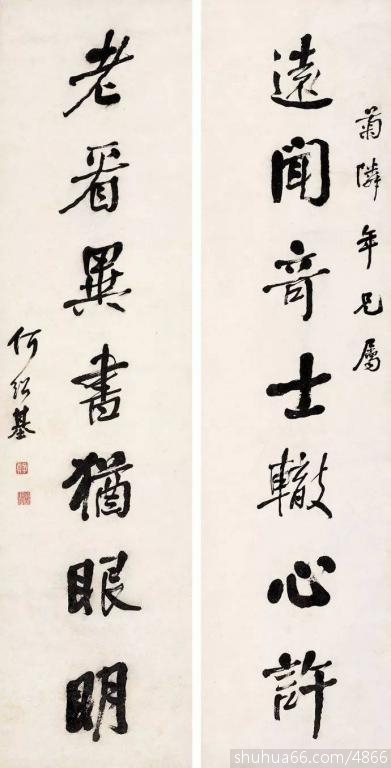 菊隣年兄屬
遠聞竒士輒心許
老看異書猶眼明
何紹基
shuhua66.com/4866